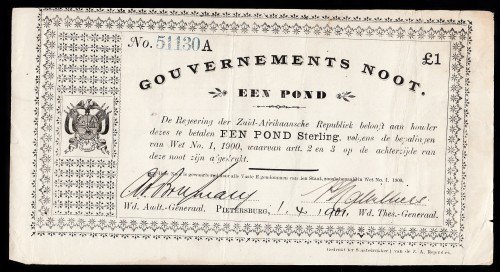 No. 51130 A
£1
GOUVERNEMENTS NOOT.
EEN POND
De Regeering der Zuid-Afrikaansche Republiek belooft aan houder
dezes te betalen EEN POND Sterling, volgens de bepalingen
van Wet No. 1, 1900, waarvan artt. 2 en 3 op de achterzijde van
deze noot zijn afgedrukt.
Vaste Eigendommen van den Staat, No. 1, 1900.
Wd. Audt.-Generaal. PIETERSBURG, 1 4 1901. Wd. Thes.-Generaal.
van de Z. A. Republiek.